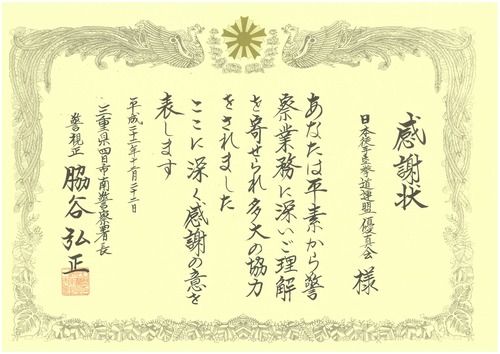 感謝状
日本徒手医拳道連盟 優真会 様
あなたは平素から警
察業務に深いご理解
を寄せられ多大の協力
をされました
ここに深く感謝の意を
表します
平成二十二年十二月二十二日
三重県四日市南警察署長
警視正 脇谷弘正